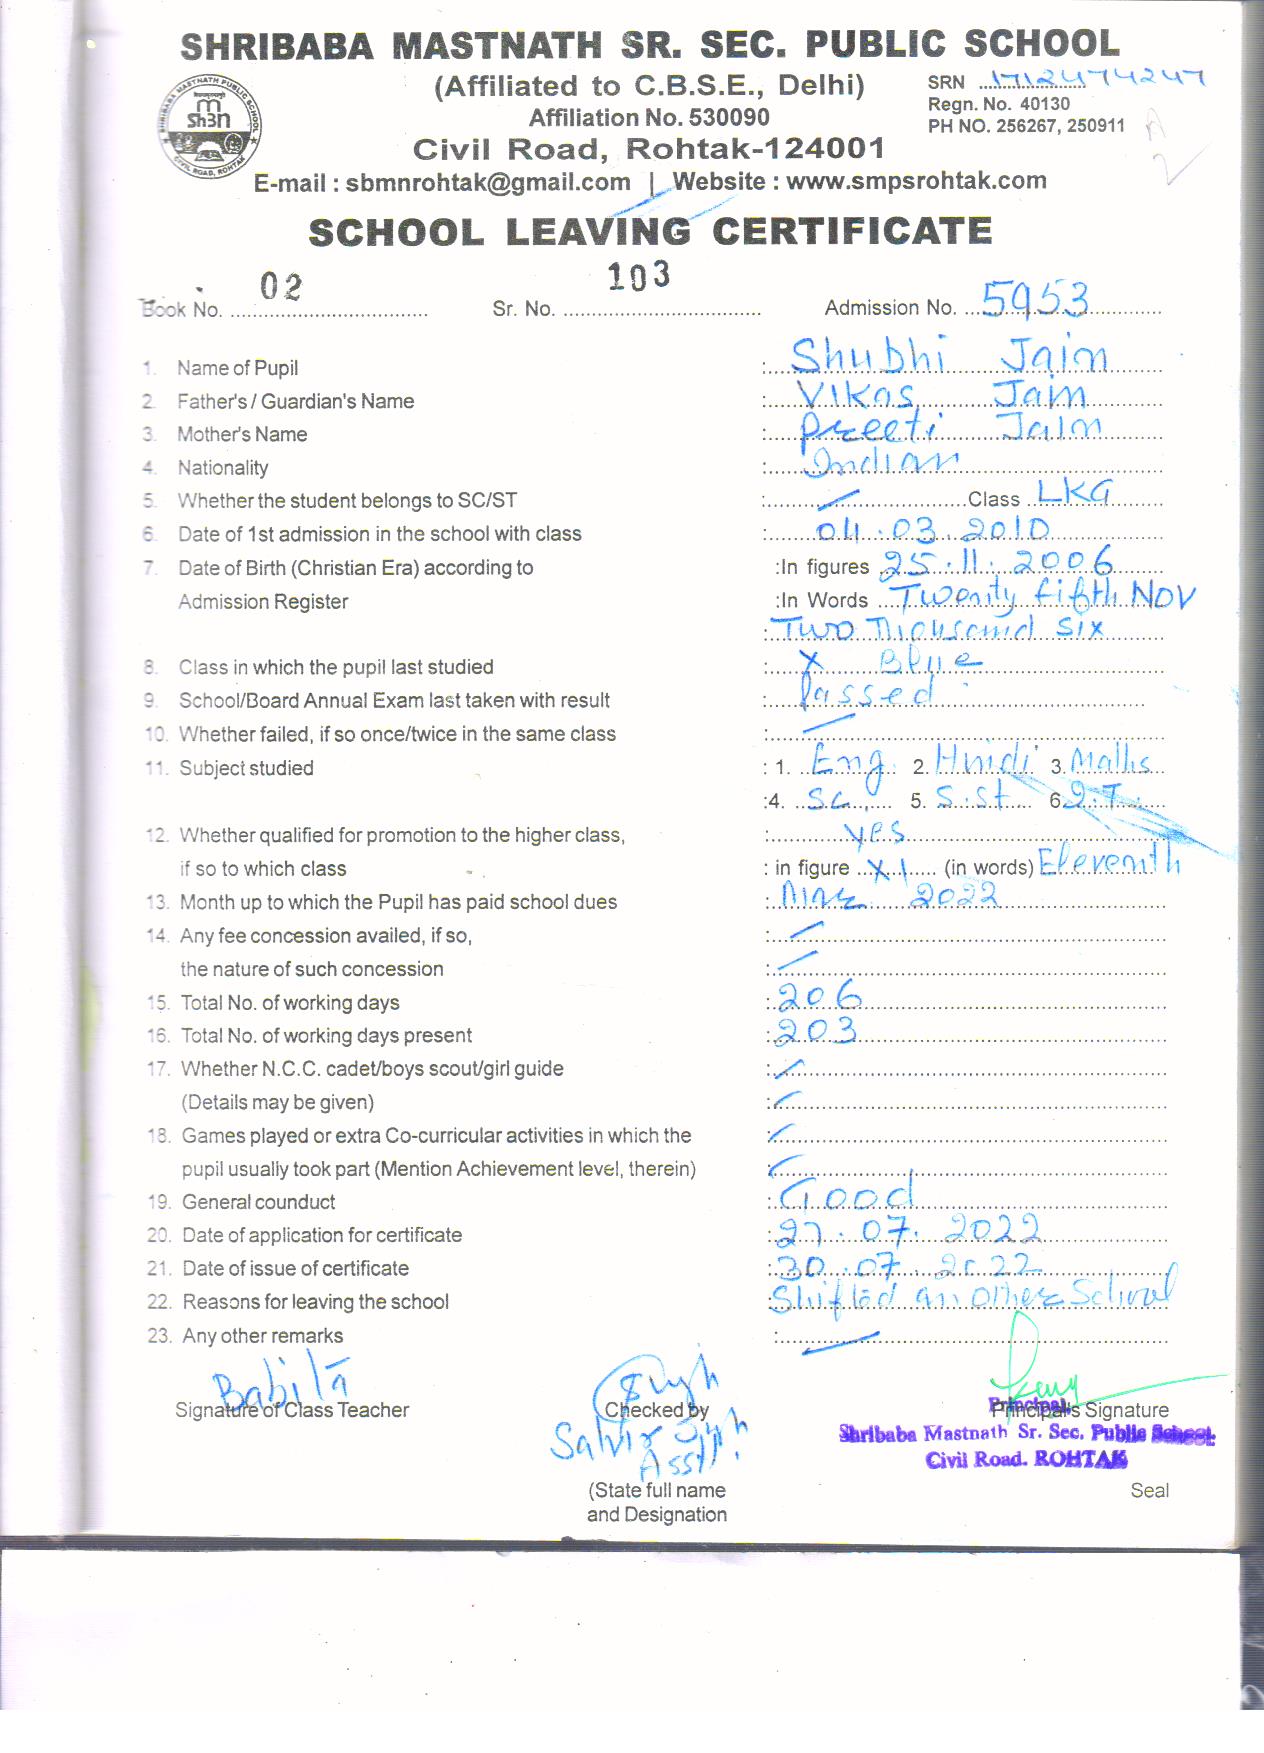 SHRIBABA MASTNATH SR. SEC. PUBLIC SCHOOL
(Affiliated to C.B.S.E., Delhi)
SRN
Affiliation No. 530090
Regn. No. 40130
PH NO. 256267, 250911
Civil Road, Rohtak-124001
E-mail : sbmnrohtak@gmail.com | Website : www.smpsrohtak.com
SCHOOL LEAVING CERTIFICATE
Book No. 02 Sr. No. 103 Admission No. 5953
1. Name of Pupil : Shubhi Jain
2. Father's / Guardian's Name : Vikas Jain
3. Mother's Name : Preeti Jain
4. Nationality : Indian
5. Whether the student belongs to SC/ST : — Class LKG
6. Date of 1st admission in the school with class : 04.03.2010
7. Date of Birth (Christian Era) according to :In figures 25.11.2006
Admission Register :In Words Twenty fifth Nov
: Two Thousand six
8. Class in which the pupil last studied : X Blue
9. School/Board Annual Exam last taken with result : Passed
10. Whether failed, if so once/twice in the same class : —
11. Subject studied : 1. Eng 2. Hindi 3. Maths
:4. Sc. 5. S.St 6. I.T.
12. Whether qualified for promotion to the higher class, : yes
if so to which class : in figure XI (in words) Eleventh
13. Month up to which the Pupil has paid school dues : Mar 2022
14. Any fee concession availed, if so, : —
the nature of such concession : —
15. Total No. of working days : 206
16. Total No. of working days present : 203
17. Whether N.C.C. cadet/boys scout/girl guide : —
(Details may be given) : —
18. Games played or extra Co-curricular activities in which the : —
pupil usually took part (Mention Achievement level, therein) : —
19. General counduct : Good
20. Date of application for certificate : 27.07.2022
21. Date of issue of certificate : 30.07.2022
22. Reasons for leaving the school : Shifted another School
23. Any other remarks : —
Babita
Signature of Class Teacher Checked by Principal's Signature
Principal
Shribaba Mastnath Sr. Sec. Public School
Civil Road. ROHTAK
Asstt.
(State full name Seal
and Designation